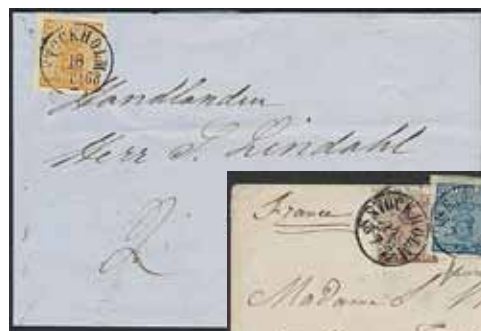 STOCKHOLM
18
Handlanden
Herr S. Lindahl
2
France
STOCKHOLM
Madame S